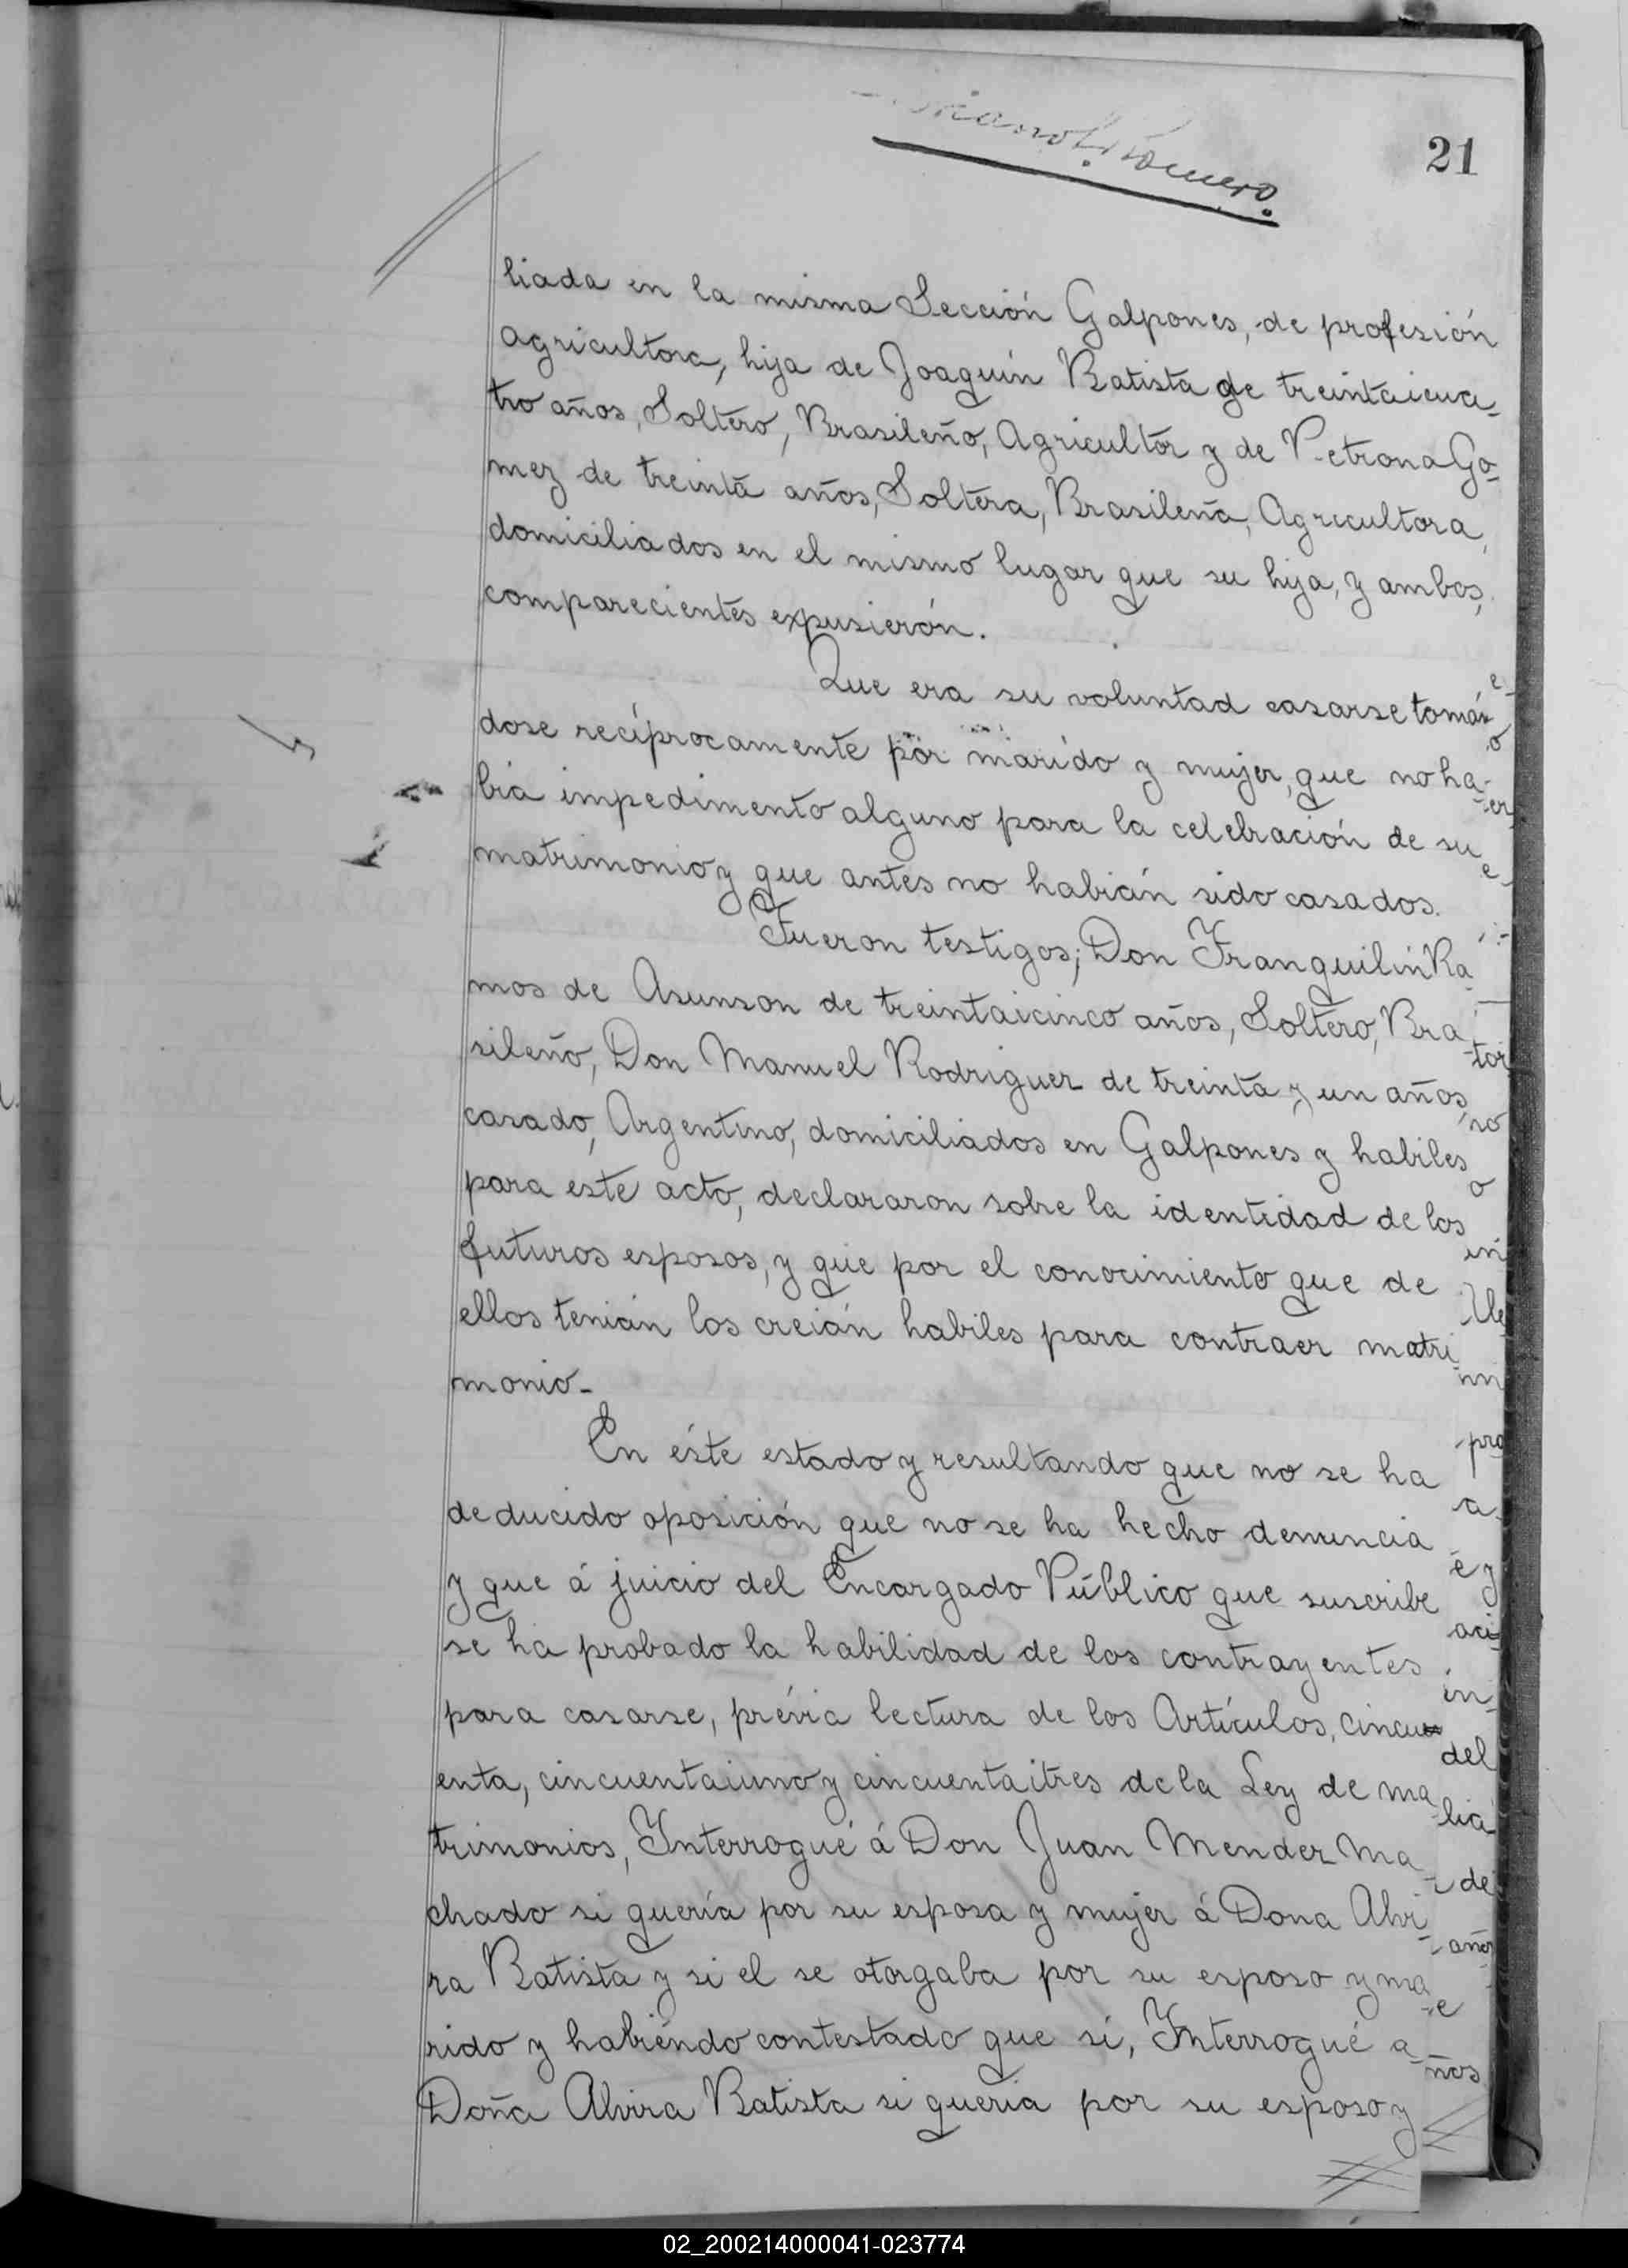 21
liada en la misma Sección Galpones, de profesión
agricultora, hija de Joaquín Batista de treintaicua-
tro años, Soltero, Brasileño, Agricultor y de Petrona Go-
mez de treinta años, Soltera, Brasileña, Agricultora,
domiciliados en el mismo lugar que su hija, y ambos,
comparecientes expusierón.
Que era su voluntad casarse tomán
dose recíprocamente por marido y mujer, que no ha-
bia impedimento alguno para la celebración de su
matrimonio y que antes no habián sido casados.
Fueron testigos; Don Franquilin Ra-
mos de Asunson de treintaicinco años, Soltero, Bra
sileño, Don Manuel Rodriguez de treinta y un años,
casado, Argentino, domiciliados en Galpones y habiles
para este acto, declararon sobre la identidad de los
futuros esposos, y que por el conocimiento que de
ellos tenián los creián habiles para contraer matri
monio-
En éste estado y resultando que no se ha
deducido oposición que no se ha hecho denuncia
y que á juicio del Encargado Público que suscribe
se ha probado la habilidad de los contrayentes
para casarse, prévia lectura de los Artículos, cincu
enta, cincuentaiuno y cincuentaitres de la Ley de ma
trimonios, Interrogué á Don Juan Mendez Ma
chado si quería por su esposa y mujer á Dona Alvi
ra Batista y si el se otorgaba por su esposo y ma
rido y habiéndo contestado que sí, Interrogué a
Doña Alvira Batista si queria por su esposo y
02_200214000041-023774